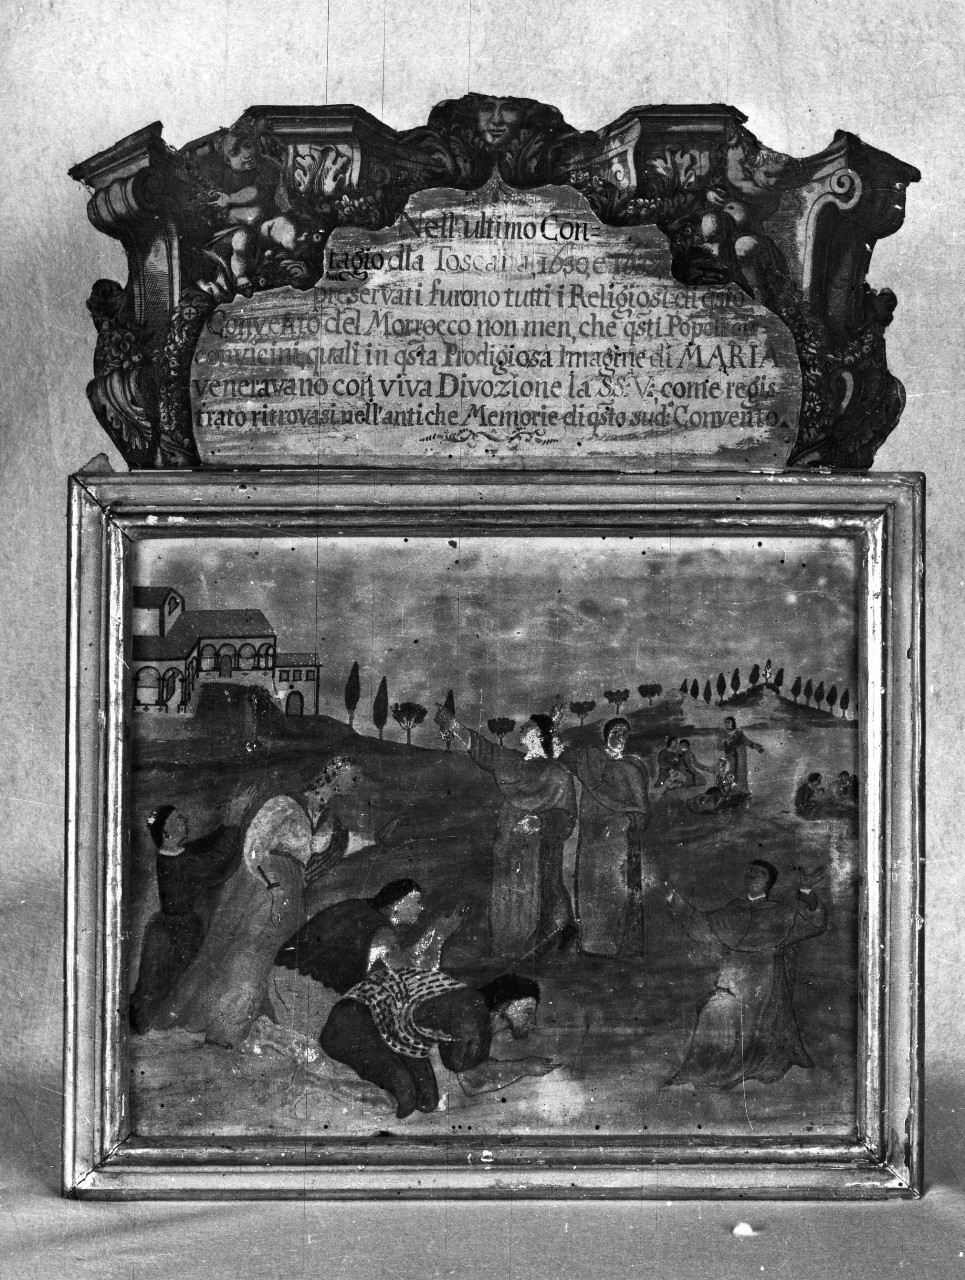 Nell'ultimo Con=
tagio dlla Toscana, 1630, e
preservati furono tutti i Religiosi di qsto
Convento del Morrocco non men, che qsti Popoli
convicini, quali in qsta Prodigiosa Imagine di MARIA
veneravano con viva Divozione la SS: V: come regis
trato ritrovasi nell'antiche Memorie di qsto sud: Convento.